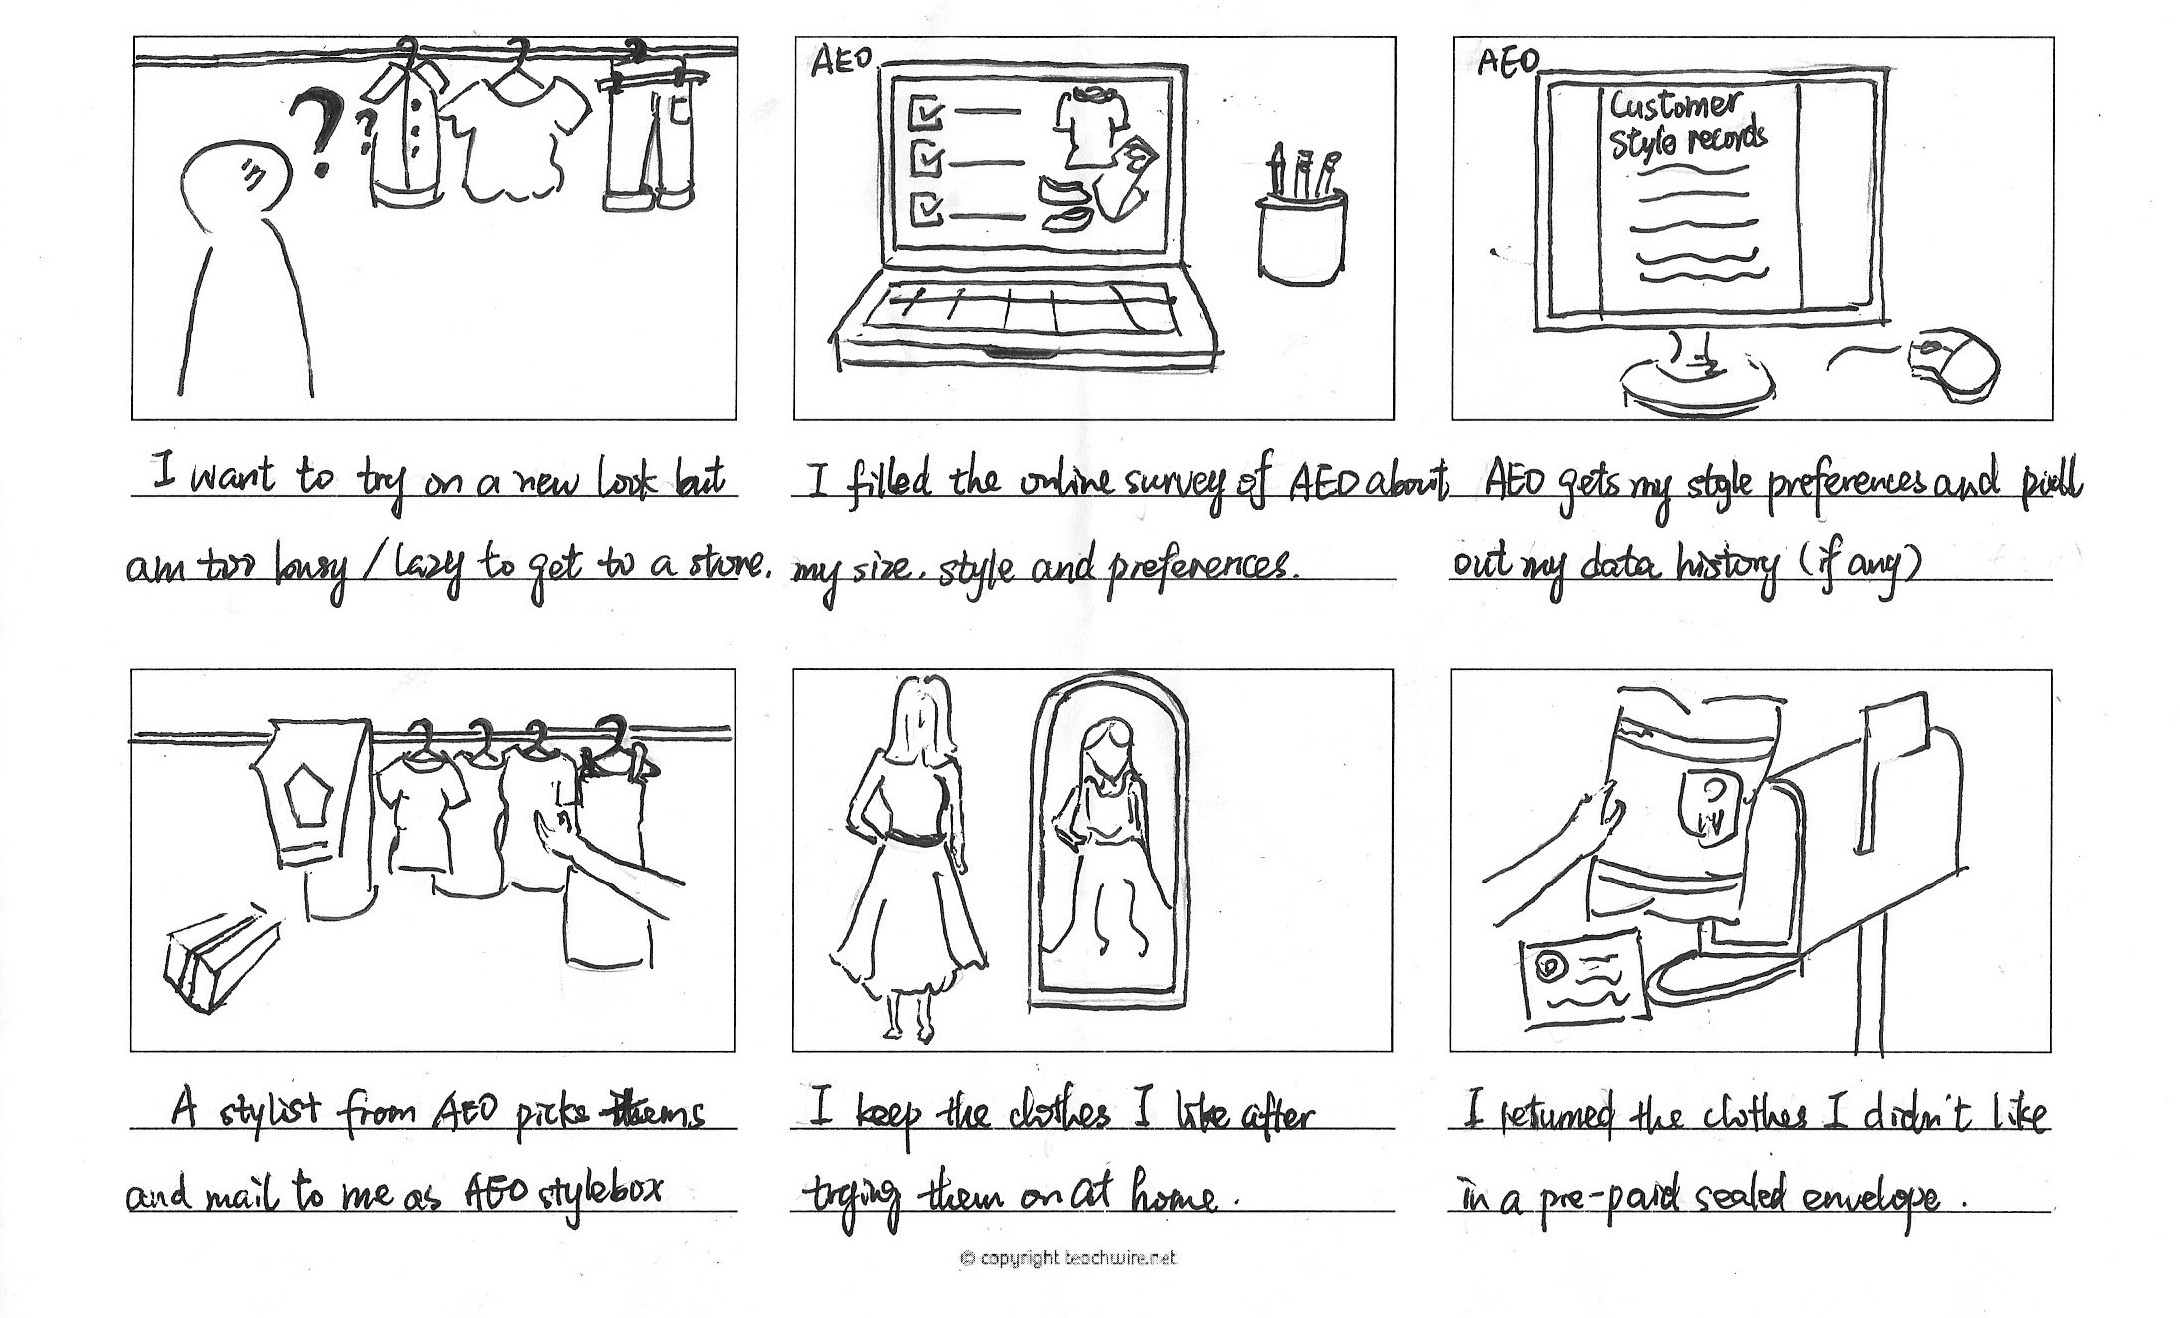 AEO
AEO
Customer
Style records
I want to try on a new look but
am too busy / lazy to get to a store.
I filled the online survey of AEO about
my size. style and preferences.
AEO gets my style preferences and pull
out my data history (if any)
A stylist from AEO picks items
and mail to me as AEO stylebox
I keep the clothes I like after
trying them on at home.
I returned the clothes I didn't like
in a pre-paid sealed envelope.
© copyright teachwire.net